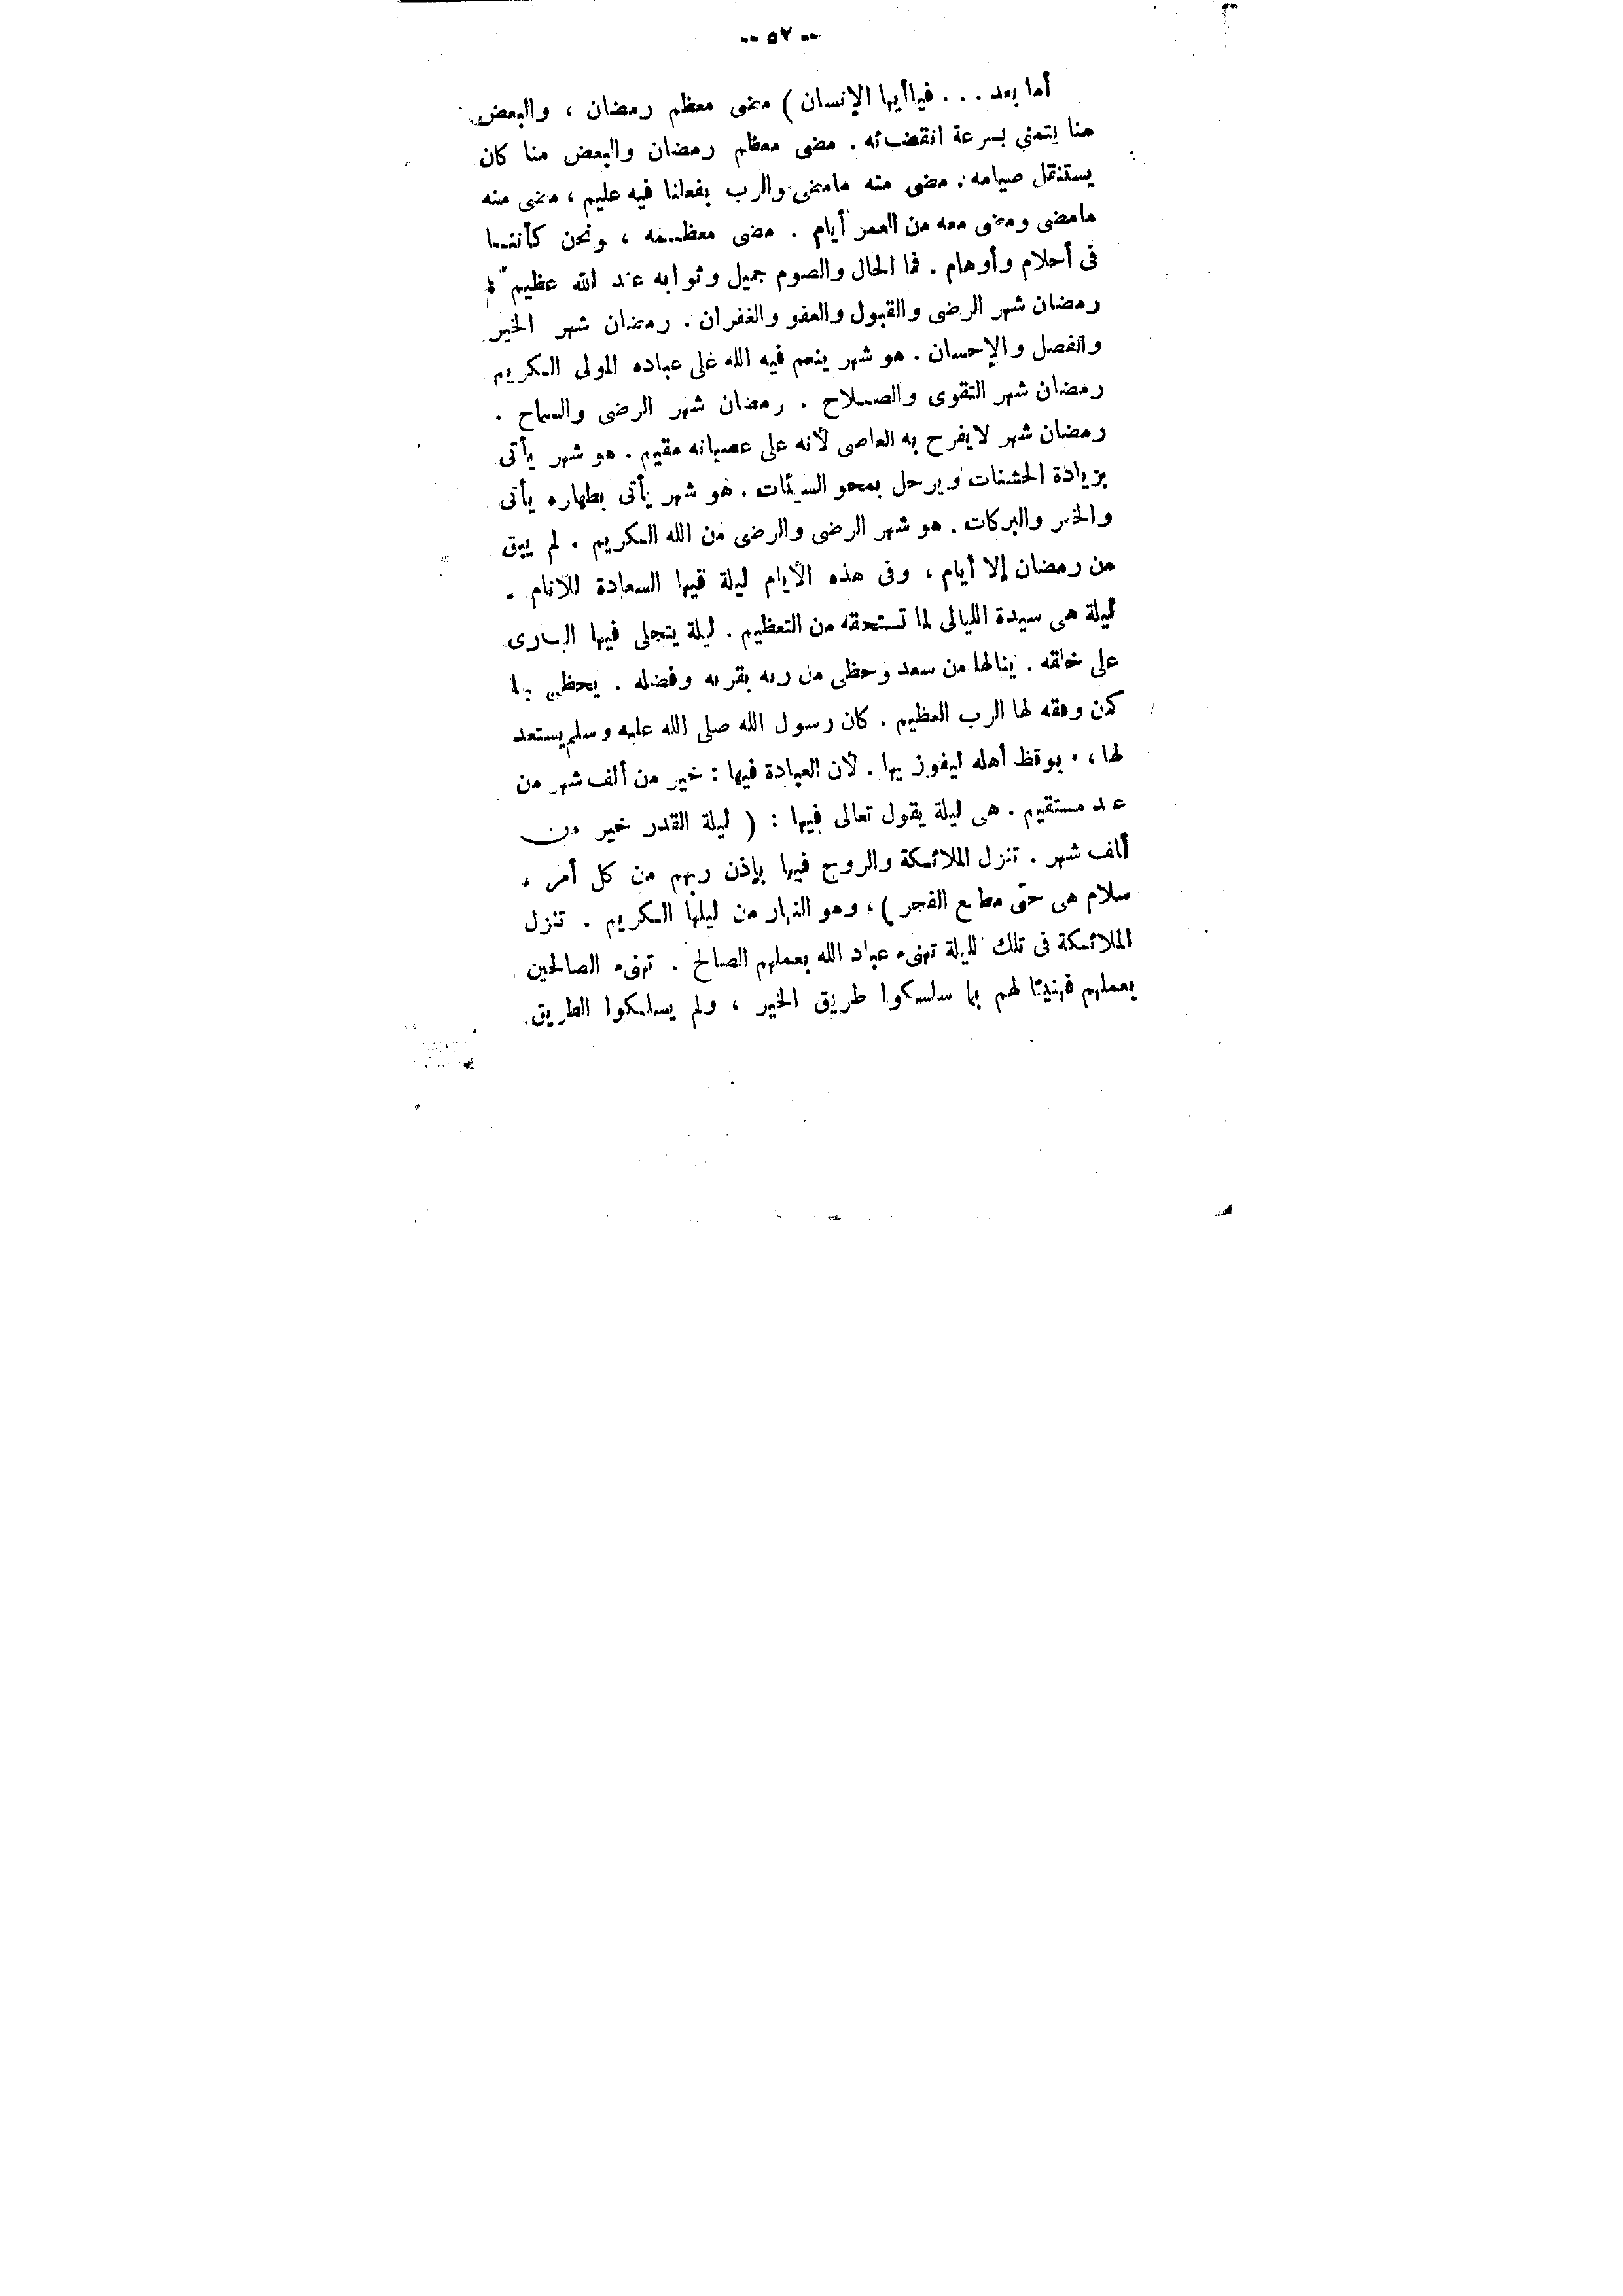 -- ٥٧ --
أما بعد . . . فياأيها الإنسان ) مضى معظم رمضان ، والبعض
منا يتمنى بسرعة انقضائه . مضى معظم رمضان والبعض منا كان
يستثقل صيامه . مضى منه مامضى والرب بفعلنا فيه عليم ، مضى منه
مامضى ومضى معه من العمر أيام . مضى معظمه ، ونحن كأننا
فى أحلام وأوهام . فما الحال والصوم جميل وثوابه عند الله عظيم
رمضان شهر الرضى والقبول والعفو والغفران . رمضان شهر الخير
والفضل والإحسان . هو شهر ينعم فيه الله على عباده المولى الكريم
رمضان شهر التقوى والصلاح . رمضان شهر الرضى والسماح .
رمضان شهر لايفرح به العاصى لأنه على عصيانه مقيم . هو شهر يأتى
بزيادة الحسنات ويرحل بمحو السيئات . هو شهر يأتى بطهاره يأتى
والخير والبركات . هو شهر الرضى والرضى من الله الكريم . لم يبق
من رمضان إلا أيام ، وفى هذه الأيام ليلة فيها السعادة للأنام .
ليلة هى سيدة الليالى لما تستحقه من التعظيم . ليلة يتجلى فيها البارى
على خلقه . ينالها من سعد وحظى من ربه بقربه وفضله . يحظى بها
من وفقه لها الرب العظيم . كان رسول الله صلى الله عليه وسلم يستعد
لها ، ويوقظ أهله ليفوز بها . لأن العبادة فيها : خير من ألف شهر من
عبد مستقيم . هى ليلة يقول تعالى فيها : ( ليلة القدر خير من
ألف شهر . تنزل الملائكة والروح فيها بإذن ربهم من كل أمر ،
سلام هى حتى مطلع الفجر ) ، وهو النهار من ليلها الكريم . تنزل
الملائكة فى تلك الليلة تهنىء عباد الله بعملهم الصالح . تهنىء الصالحين
بعملهم فهنيئا لهم بما سلسكوا طريق الخير ، ولم يسلكوا الطريق